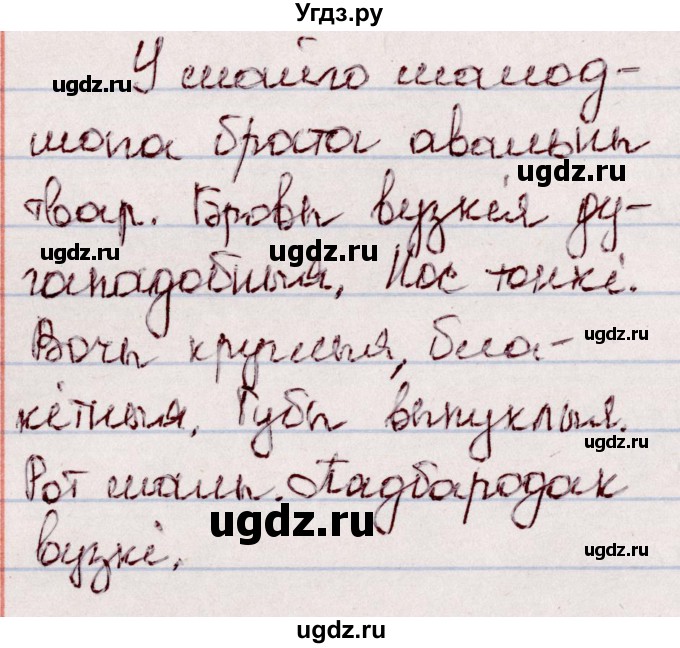 Угдз.ру
У майго малод-
шага брата авальны
твар. Бровы вузкія ду-
гападобныя, Нос тонкі.
Вочы круглыя, бла-
кітныя, Губы выпуклыя.
Рот малы. Падбародак
вузкі,
ugdz.ru
ugdz.ru
ugdz.ru
ugdz.ru
ugdz.ru
ugdz.ru
ugdz.ru
ugdz.ru
ugdz.ru